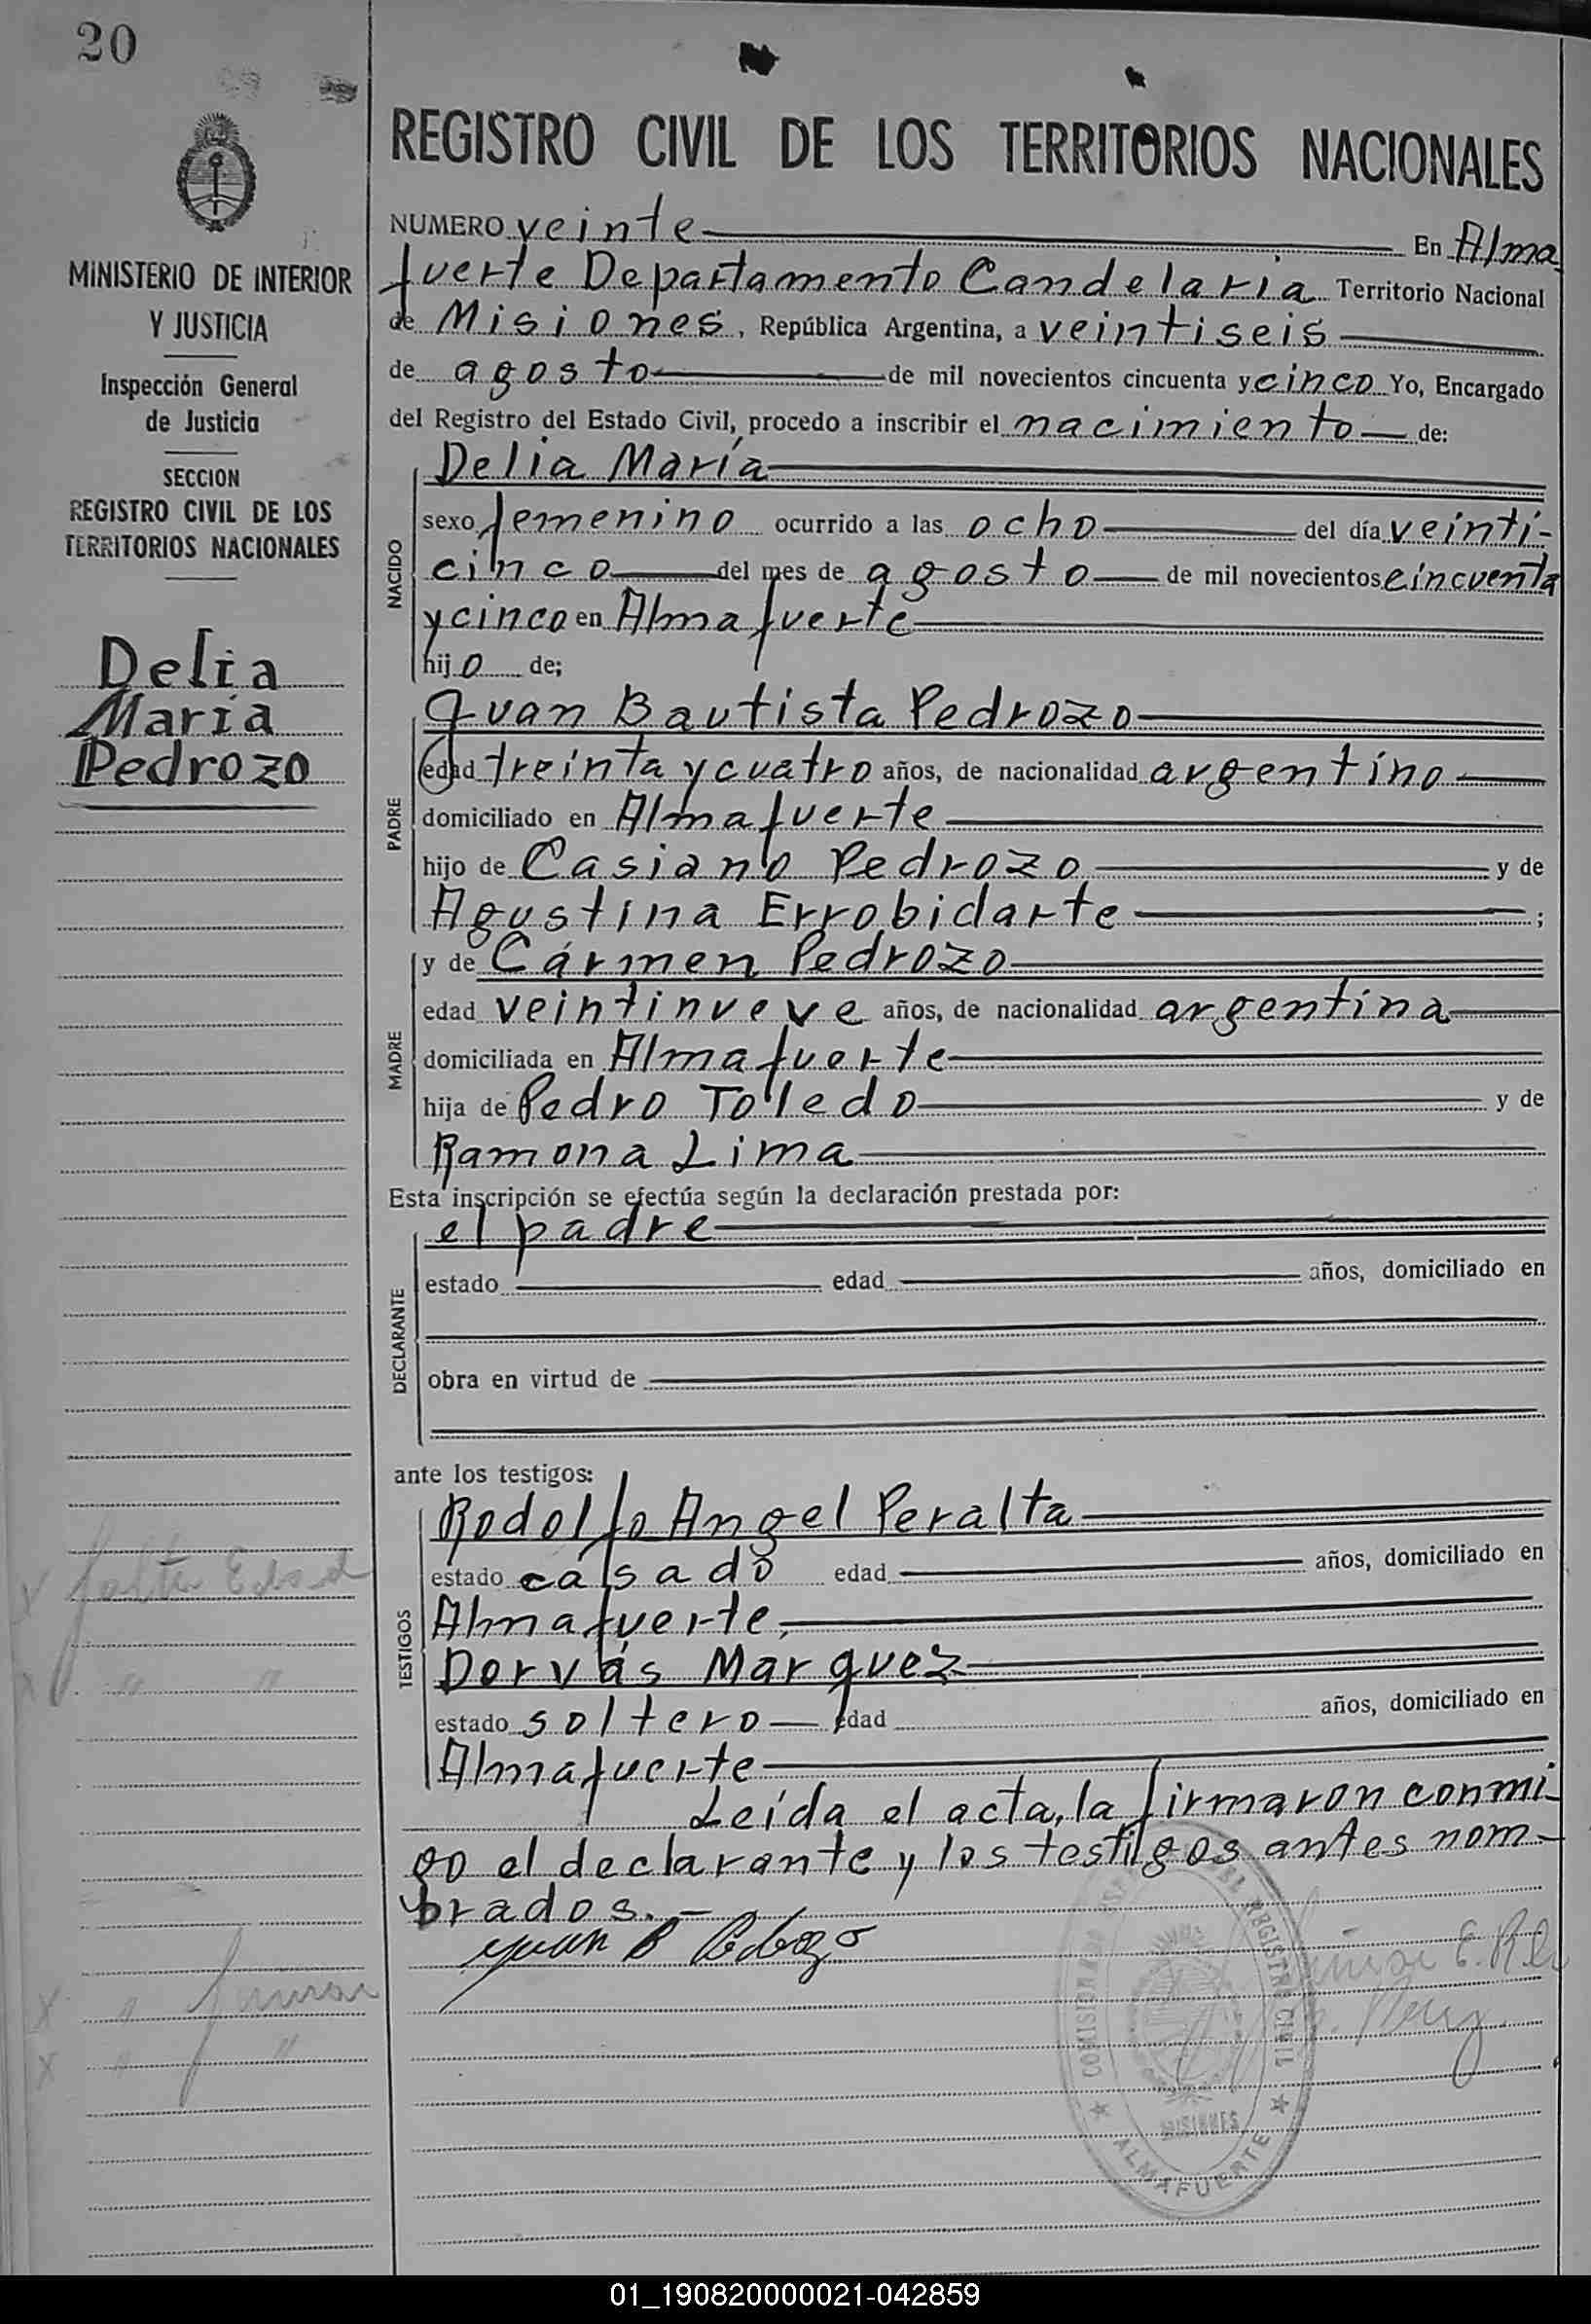 20
MINISTERIO DE INTERIOR
Y JUSTICIA
Inspección General
de Justicia
SECCION
REGISTRO CIVIL DE LOS
TERRITORIOS NACIONALES
Delia
María
Pedrozo
REGISTRO CIVIL DE LOS TERRITORIOS NACIONALES
NUMERO veinte En Alma
fuerte Departamento Candelaria Territorio Nacional
de Misiones, República Argentina, a veintiseis
de agosto de mil novecientos cincuenta y cinco Yo, Encargado
del Registro del Estado Civil, procedo a inscribir el nacimiento de:
NACIDO
Delia María
sexo femenino ocurrido a las ocho del día veinti-
cinco del mes de agosto de mil novecientos cincuenta
y cinco en Almafuerte
hijo de;
PADRE
Juan Bautista Pedrozo
edad treinta y cuatro años, de nacionalidad argentino
domiciliado en Almafuerte
hijo de Casiano Pedrozo y de
Agustina Errobidarte ;
MADRE
y de Cármen Pedrozo
edad veintinueve años, de nacionalidad argentina
domiciliada en Almafuerte
hija de Pedro Toledo y de
Ramona Lima
Esta inscripción se efectúa según la declaración prestada por:
DECLARANTE
el padre
estado edad años, domiciliado en
obra en virtud de
ante los testigos:
TESTIGOS
Rodolfo Angel Peralta
estado casado edad años, domiciliado en
Almafuerte,
Dorvás Marquez
estado soltero edad años, domiciliado en
Almafuerte
Leída el acta, la firmaron conmi-
go el declarante y los testigos antes nom-
brados.-
Juan B Pedrozo
falta Edad
" "
REGISTRO CIVIL
MISIONES
★ ALMAFUERTE ★
01_190820000021-042859